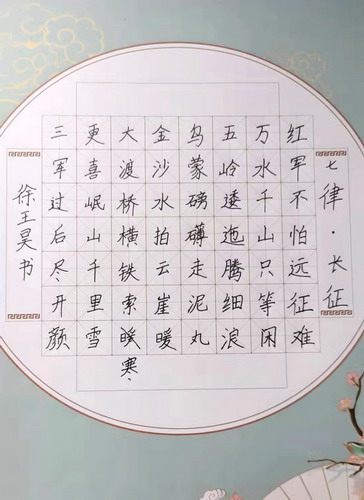 七律·长征
红军不怕远征难
万水千山只等闲
五岭逶迤腾细浪
乌蒙磅礴走泥丸
金沙水拍云崖暖
大渡桥横铁索寒
更喜岷山千里雪
三军过后尽开颜
徐王昊书